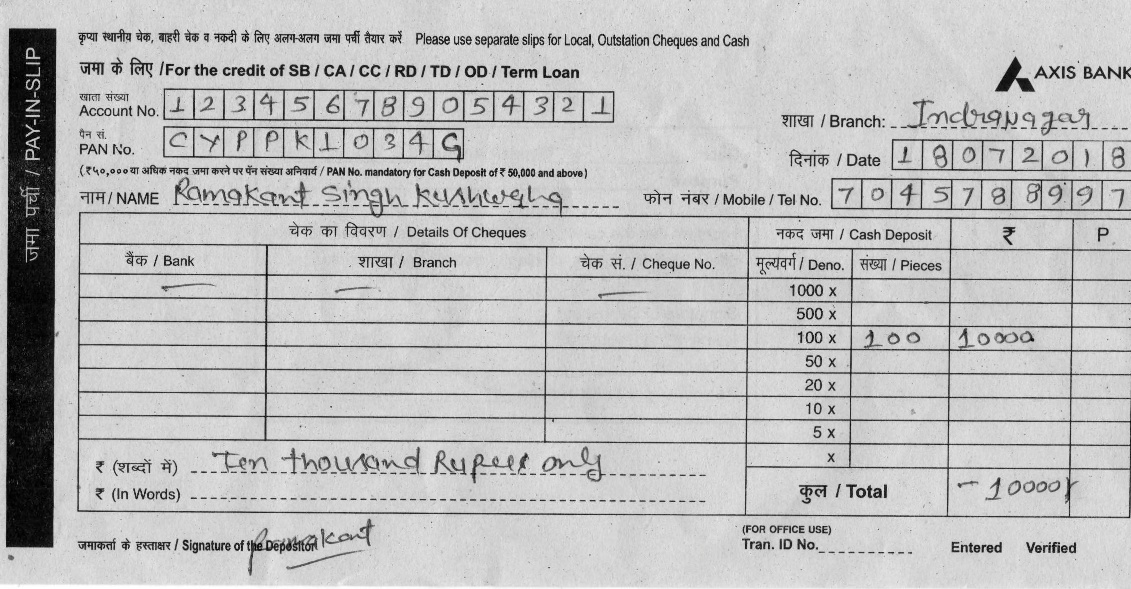 जमा पर्ची / PAY-IN-SLIP
कृप्या स्थानीय चेक, बाहरी चेक व नकदी के लिए अलग-अलग जमा पर्ची तैयार करें Please use separate slips for Local, Outstation Cheques and Cash
जमा के लिए /For the credit of SB / CA / CC / RD / TD / OD / Term Loan
AXIS BANK
खाता संख्या
Account No. 1 2 3 4 5 6 7 8 9 0 5 4 3 2 1
शाखा / Branch: Indranagar
पैन सं.
PAN No. C Y P P K 1 0 3 4 G
दिनांक / Date 1 8 0 7 2 0 1 8
(₹५०,००० या अधिक नकद जमा करने पर पॅन संख्या अनिवार्य / PAN No. mandatory for Cash Deposit of ₹ 50,000 and above)
नाम/ NAME Ramakant Singh Kushwaha
फोन नंबर / Mobile / Tel No. 7 0 4 5 7 8 8 9 9 7
चेक का विवरण / Details Of Cheques नकद जमा / Cash Deposit ₹ P
बैंक / Bank शाखा / Branch चेक सं. / Cheque No. मूल्यवर्ग / Deno. संख्या / Pieces
1000 x
500 x
100 x 100 10000
50 x
20 x
10 x
5 x
x
₹ (शब्दों में) Ten thousand Rupees only
₹ (In Words)
कुल / Total - 10000/
जमाकर्ता के हस्ताक्षर / Signature of the Depositor Ramakant
(FOR OFFICE USE)
Tran. ID No. Entered Verified